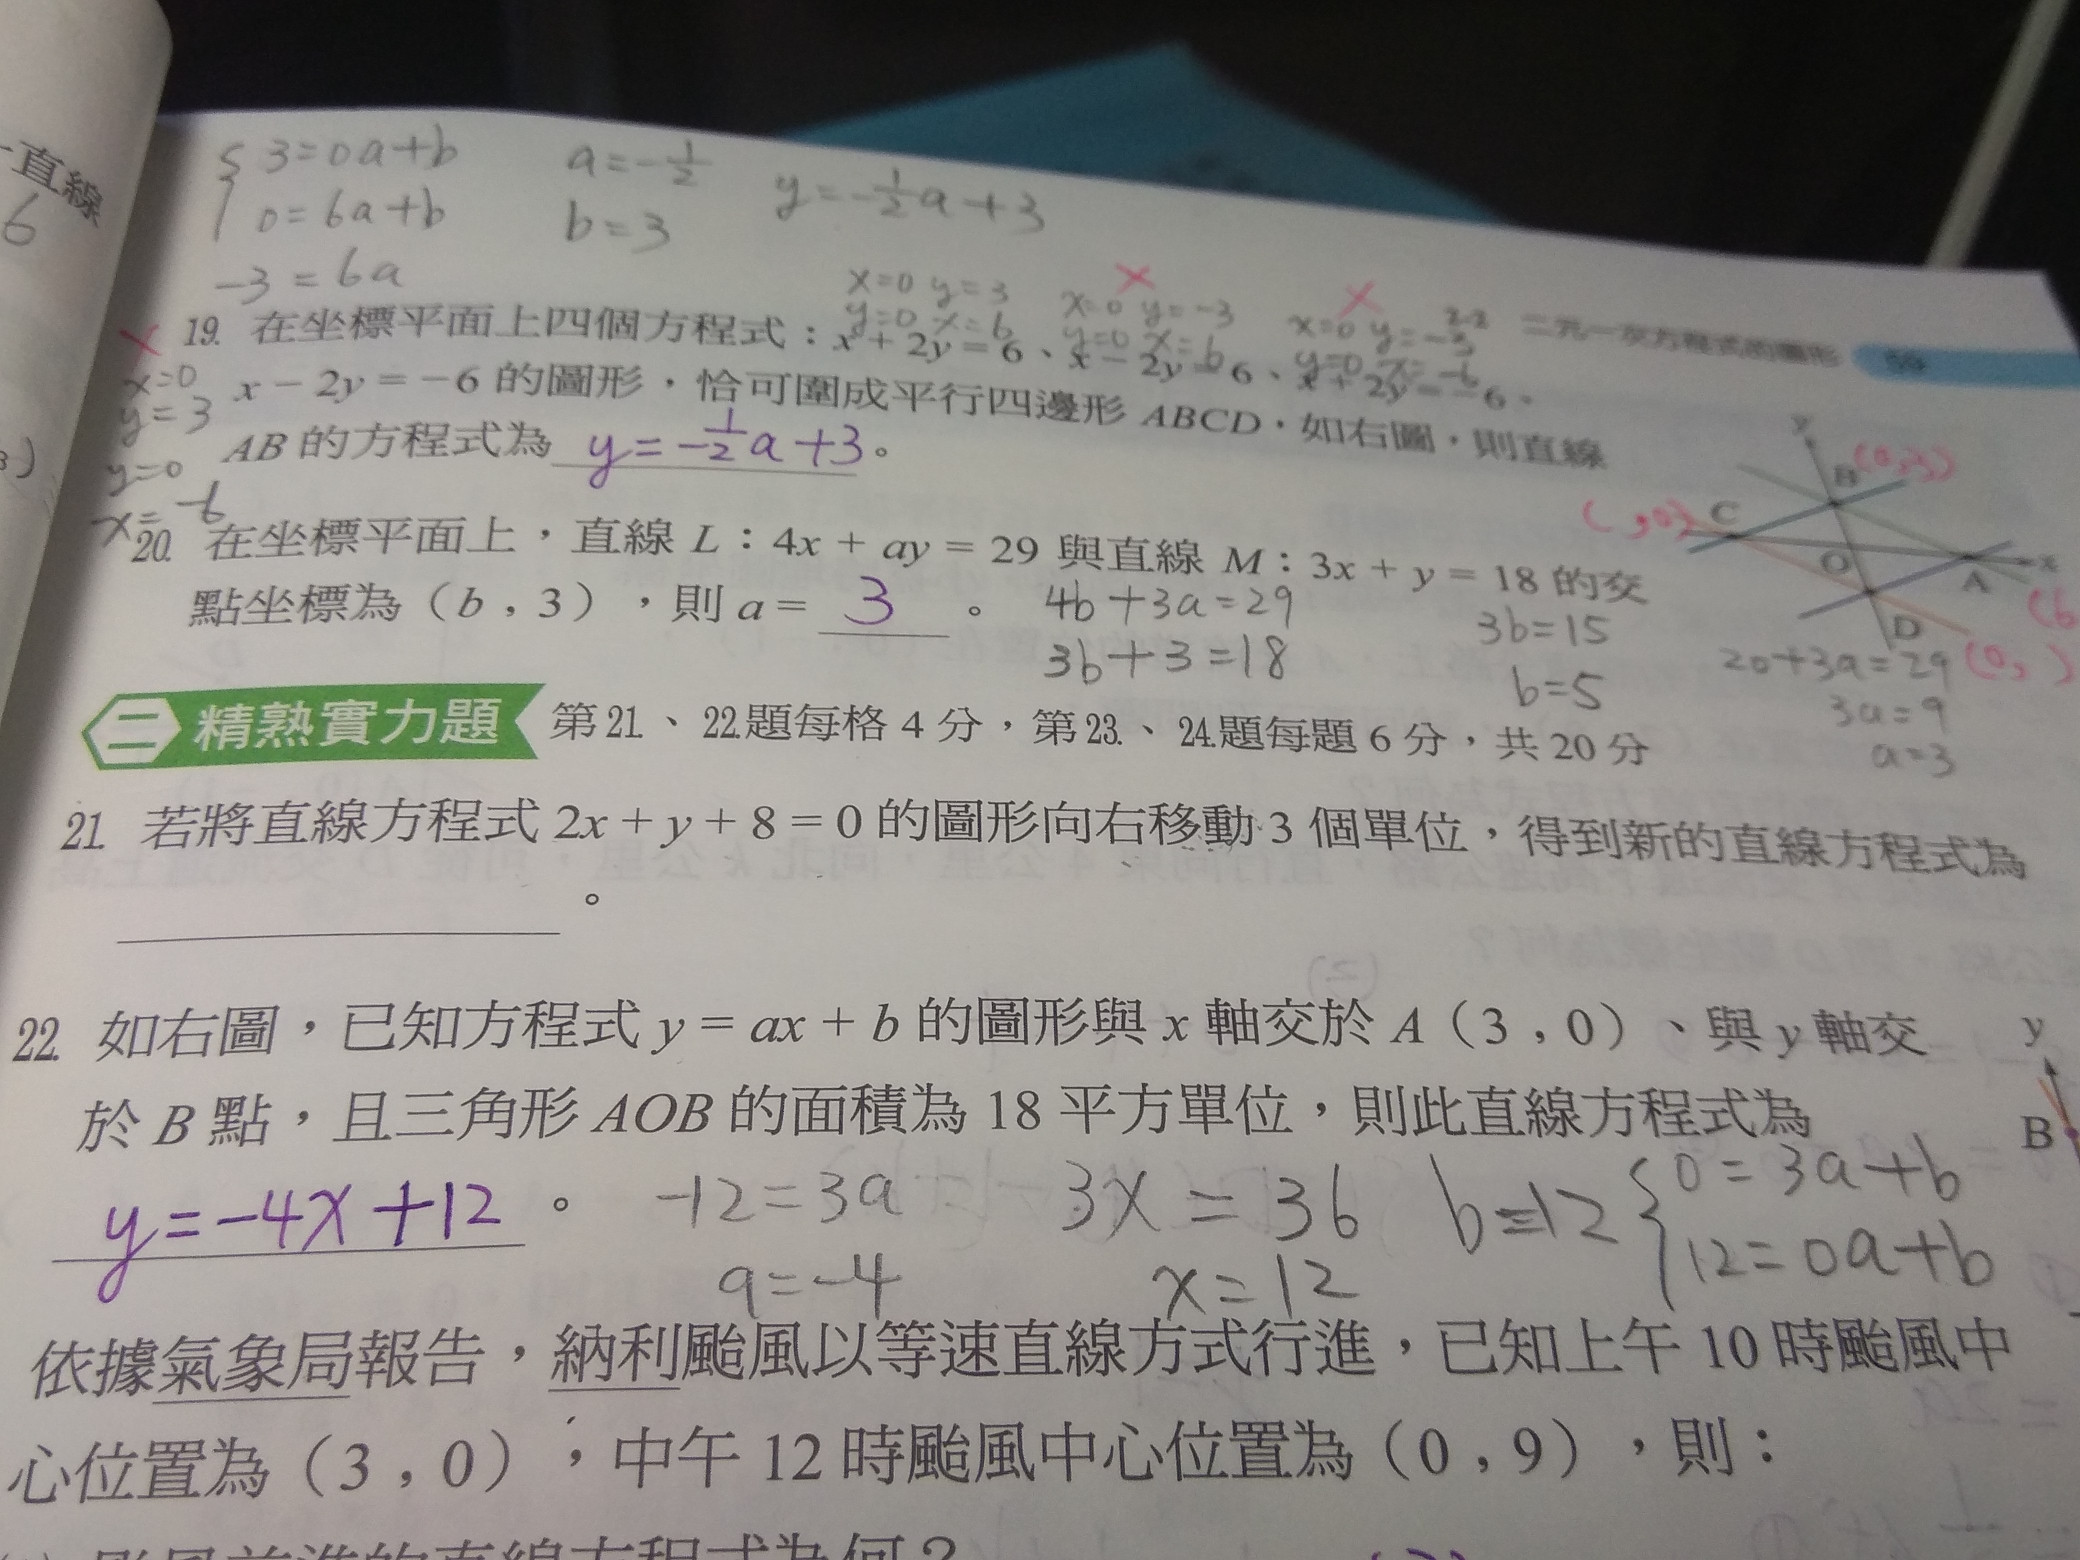 直線
6
3=0a+b
0=6a+b
-3=6a
a=-1/2
b=3
y=-1/2a+3
x=0 y=3
y=0 x=6
x=0 y=-3
y=0 x=6
x=0 y=-3
y=0 x=-6
2-2 二元一次方程式的圖形 59
19. 在坐標平面上四個方程式：x+2y=6、x-2y=6、x+2y=-6、
x-2y=-6的圖形，恰可圍成平行四邊形ABCD，如右圖，則直線
AB的方程式為 y=-1/2a+3。
x=0
y=3
y=0
x=-6
y
B (0,3)
( ,0) C
O
A
x
(6
D
(0, )
20. 在坐標平面上，直線L：4x+ay=29與直線M：3x+y=18的交
點坐標為（b,3），則a= 3 。
4b+3a=29
3b+3=18
3b=15
b=5
20+3a=29
3a=9
a=3
二 精熟實力題 第21.、22.題每格4分，第23.、24.題每題6分，共20分
21. 若將直線方程式2x+y+8=0的圖形向右移動3個單位，得到新的直線方程式為
。
22. 如右圖，已知方程式y=ax+b的圖形與x軸交於A（3,0）、與y軸交
於B點，且三角形AOB的面積為18平方單位，則此直線方程式為
y=-4x+12 。
-12=3a
a=-4
3x=36
x=12
b=12
0=3a+b
12=0a+b
y
B
依據氣象局報告，納利颱風以等速直線方式行進，已知上午10時颱風中
心位置為（3,0），中午12時颱風中心位置為（0,9），則：
颱風前進的直線方程式為何？